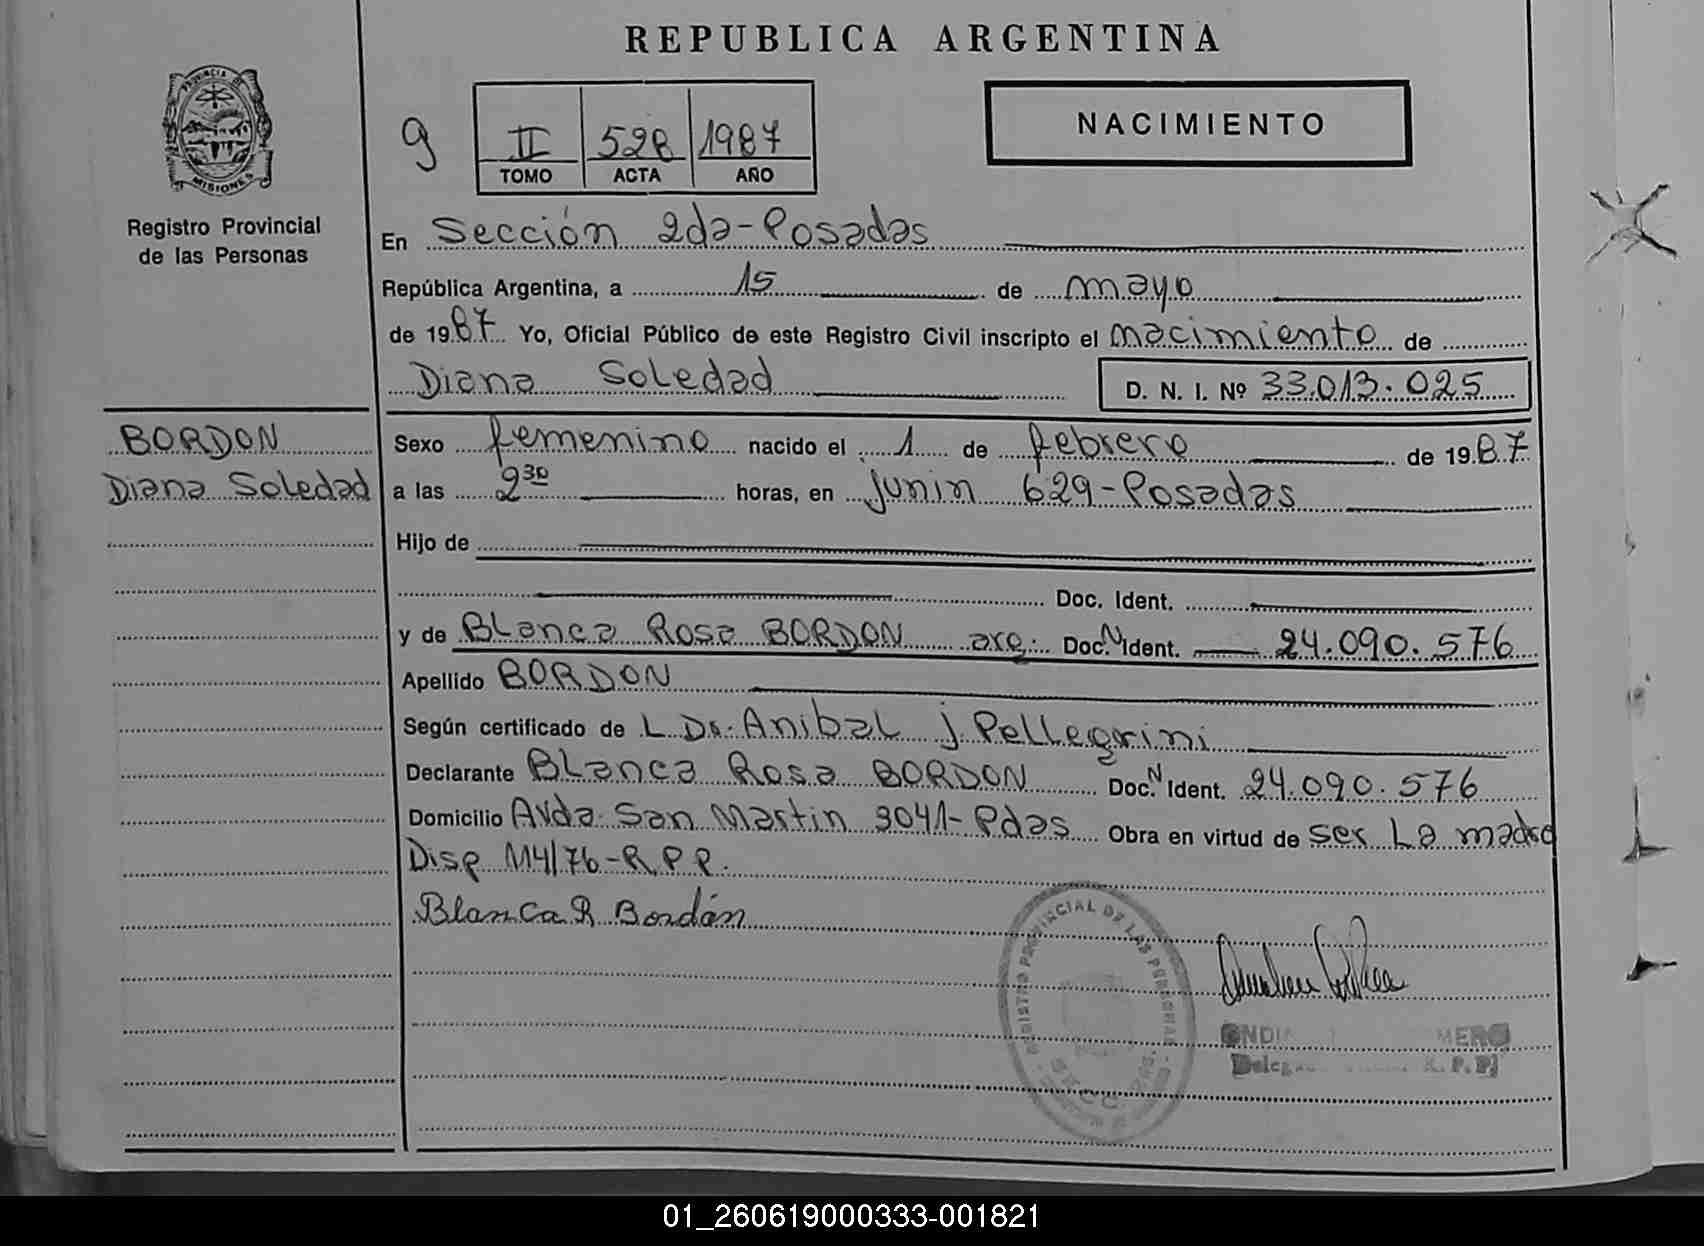 REPUBLICA ARGENTINA
PROVINCIA DE
MISIONES
Registro Provincial
de las Personas
9
II 528 1987
TOMO ACTA AÑO
NACIMIENTO
En Sección 2da-Posadas
República Argentina, a 15 de mayo
de 1987 Yo, Oficial Público de este Registro Civil inscripto el nacimiento de
Diana Soledad D. N. I. Nº 33.013.025
BORDON
Diana Soledad
Sexo femenino nacido el 1 de febrero de 1987
a las 2 30 horas, en Junin 629-Posadas
Hijo de
Doc. Ident.
y de Blanca Rosa BORDON arg. Doc. N Ident. 24.090.576
Apellido BORDON
Según certificado de L Dr. Anibal J Pellegrini
Declarante Blanca Rosa BORDON Doc. N Ident. 24.090.576
Domicilio Avda. San Martin 3041-Pdas Obra en virtud de ser La madre
Disp 114/76-R.P.P.
Blanca R Bordón
REGISTRO PROVINCIAL DE LAS PERSONAS
01_260619000333-001821